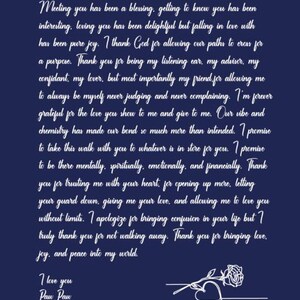 Meeting you has been a blessing, getting to know you has been
interesting, loving you has been delightful but falling in love with
has been pure joy. I thank God for allowing our paths to cross for
a purpose. Thank you for being my listening ear, my adviser, my
confidant, my lover, but most importantly my friend,for allowing me
to always be myself never judging and never complaining. I'm forever
grateful for the love you show to me and give to me. Our vibe and
chemistry has made our bond so much more than intended. I promise
to take this walk with you to whatever is in store for you. I promise
to be there mentally, spiritually, emotionally, and financially. Thank
you for trusting me with your heart, for opening up more, letting
your guard down, giving me your love, and allowing me to love you
without limits. I apologize for bringing confusion in your life but I
truly thank you for not walking away. Thank you for bringing love,
joy, and peace into my world.
I love you
Paw Paw